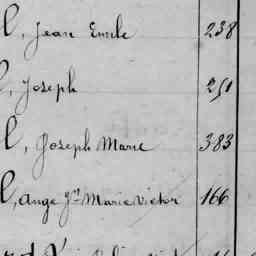 l, Jean Emile 238
l, Joseph 251
l, Joseph Marie 383
l, Ange Jn Marie Victor 166